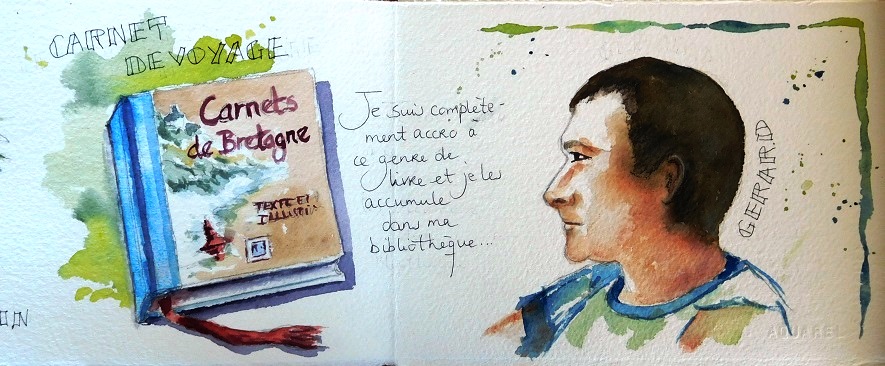 CARNET
DE VOYAGE
Carnets
de Bretagne
TEXTE ET
Je suis complète-
ment accro à
ce genre de
livre et je les
accumule
dans ma
bibliothèque...
GERARD
AQUAREL